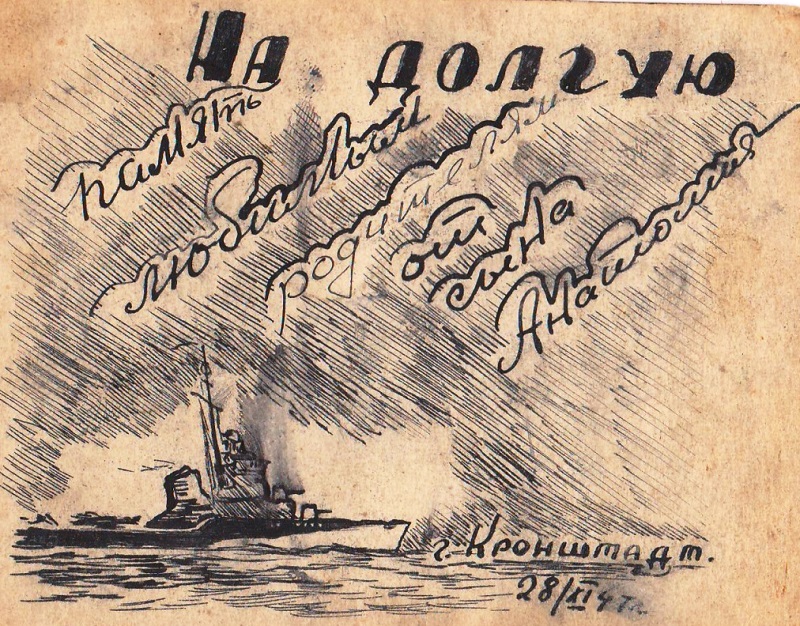 На долгую
память
любимым
родителям
от
сына
Анатолия
г. Кронштадт.
28/XI 47г.